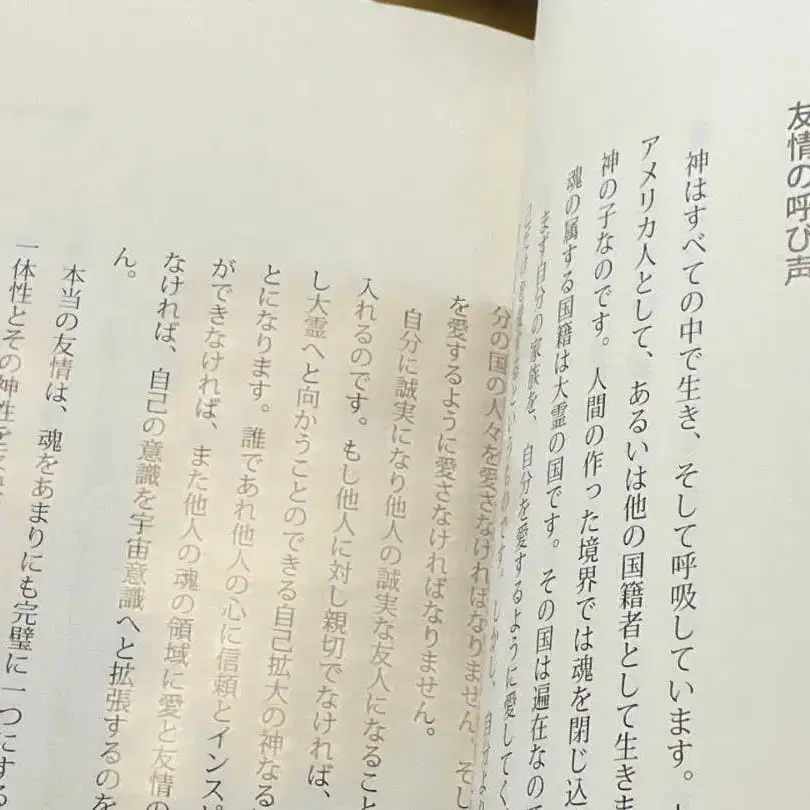 友情の呼び声
神はすべての中で生き、そして呼吸しています。
アメリカ人として、あるいは他の国籍者として生きま
神の子なのです。人間の作った境界では魂を閉じ込
魂の属する国籍は大霊の国です。その国は遍在なので
まず自分の家族を、自分を愛するように愛してく
というものです。しかし、自分より
分の国の人々を愛さなければなりません。そし
を愛するように愛さなければなりません。
自分に誠実になり他人の誠実な友人になること
入れるのです。もし他人に対し親切でなければ、
し大霊へと向かうことのできる自己拡大の神なる
とになります。誰であれ他人の心に信頼とインスピ
ができなければ、また他人の魂の領域に愛と友情の
なければ、自己の意識を宇宙意識へと拡張するのを
ん。
本当の友情は、魂をあまりにも完璧に一つにする
一体性とその神性を